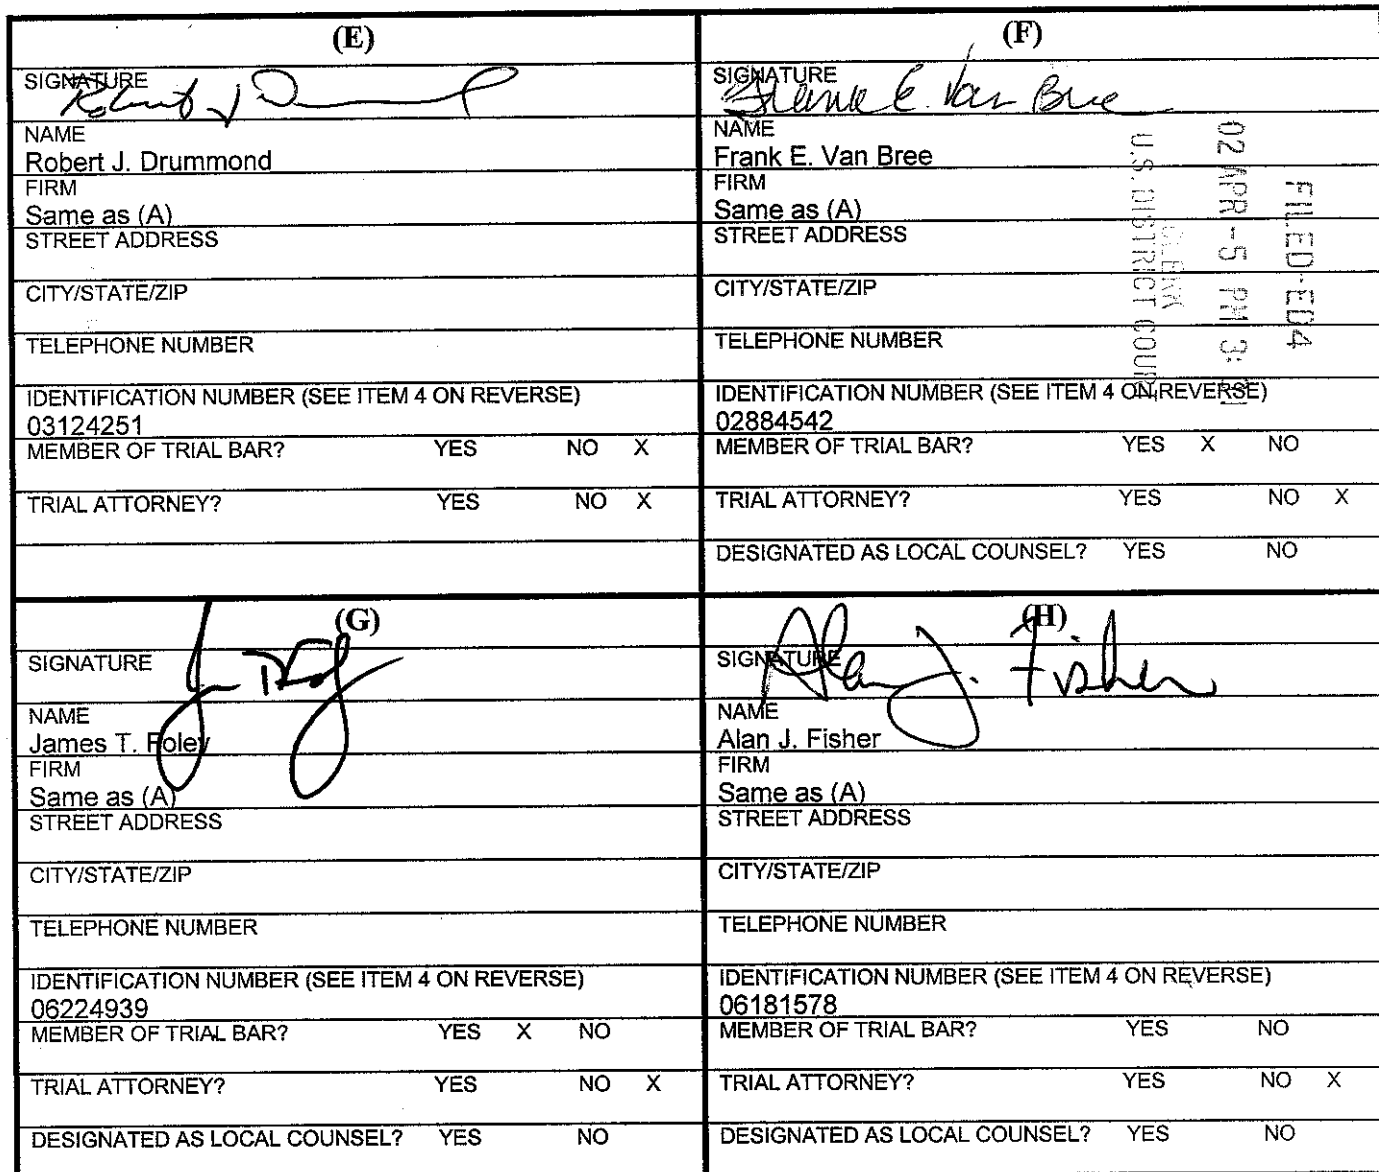 (E)
SIGNATURE
Robert J Drummond
NAME
Robert J. Drummond
FIRM
Same as (A)
STREET ADDRESS
CITY/STATE/ZIP
TELEPHONE NUMBER
IDENTIFICATION NUMBER (SEE ITEM 4 ON REVERSE)
03124251
MEMBER OF TRIAL BAR? YES NO X
TRIAL ATTORNEY? YES NO X
(F)
SIGNATURE
Frank E. Van Bree
NAME
Frank E. Van Bree
FIRM
Same as (A)
STREET ADDRESS
CITY/STATE/ZIP
TELEPHONE NUMBER
IDENTIFICATION NUMBER (SEE ITEM 4 ON REVERSE)
02884542
MEMBER OF TRIAL BAR? YES X NO
TRIAL ATTORNEY? YES NO X
DESIGNATED AS LOCAL COUNSEL? YES NO
FILED-ED4
02 APR -5 PM 3:
CLERK
U.S. DISTRICT COURT
(G)
SIGNATURE
NAME
James T. Foley
FIRM
Same as (A)
STREET ADDRESS
CITY/STATE/ZIP
TELEPHONE NUMBER
IDENTIFICATION NUMBER (SEE ITEM 4 ON REVERSE)
06224939
MEMBER OF TRIAL BAR? YES X NO
TRIAL ATTORNEY? YES NO X
DESIGNATED AS LOCAL COUNSEL? YES NO
(H)
SIGNATURE
Alan J. Fisher
NAME
Alan J. Fisher
FIRM
Same as (A)
STREET ADDRESS
CITY/STATE/ZIP
TELEPHONE NUMBER
IDENTIFICATION NUMBER (SEE ITEM 4 ON REVERSE)
06181578
MEMBER OF TRIAL BAR? YES NO
TRIAL ATTORNEY? YES NO X
DESIGNATED AS LOCAL COUNSEL? YES NO